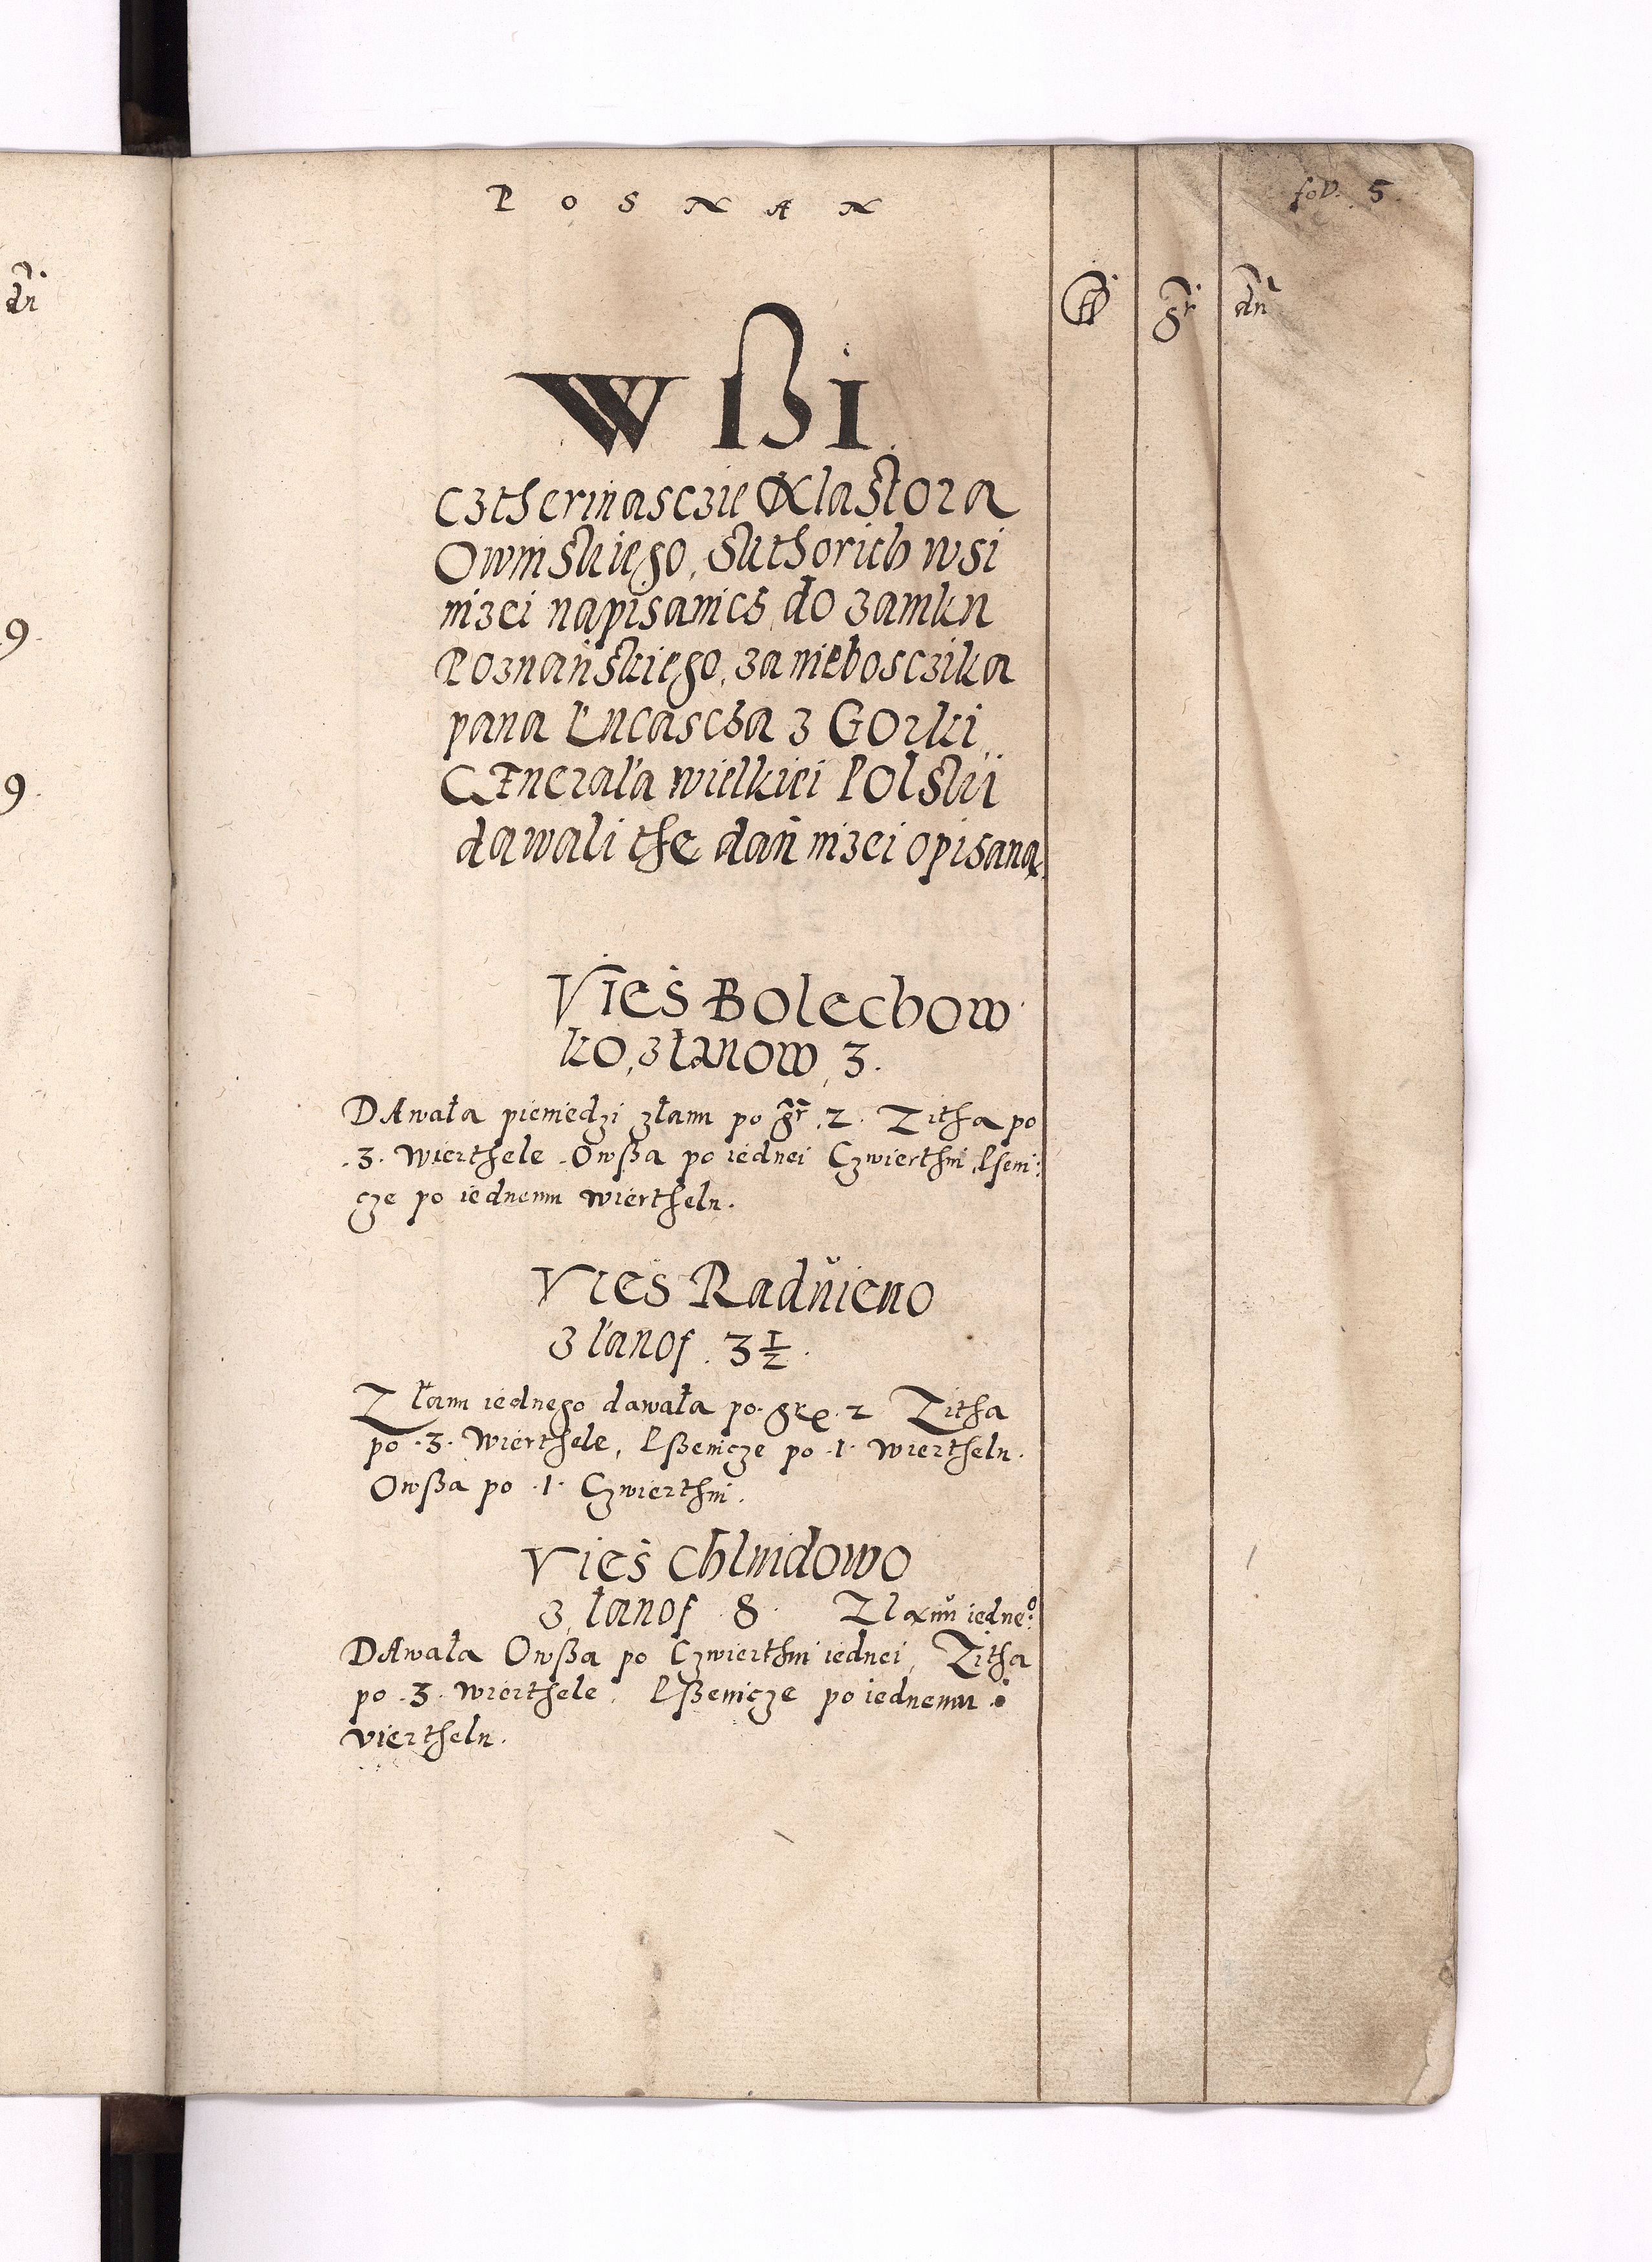 POSNAN
fol. 5.
fl gr dn
Wßi
Cztherinasczie Klasztora
Owinskiego, Skthorich wsi
nizei napisanich do zamku
Poznańskiego, za niebosczika
pana Lucascza z Gorki
GEnerała wielkiei Polskii
dawali the dań nizei opisaną.
Vies Bolechow
ko, z łanow 3.
DAwała pieniedzi złanu po gr. 2. Zitha po
.3. wierthele. Owßa po iednei Czwierthni, Pseni:
cze po iednemu wierthelu.
Vies Radũieno
z łanof. 3 1/2.
Z łanu iednego dawała po. gr. 2 Zitha
po .3. wierthele, Pßenicze po .1. wierthelu.
Owßa po .1. Czwierthni.
Vies Chludowo
z łanof 8. Z lanũ iedneo:
DAwała Owßa po Czwierthni iednei, Zitha
po .3. wierthele, Pßenicze po iednemu
vierthelu.
dn
9.
9.